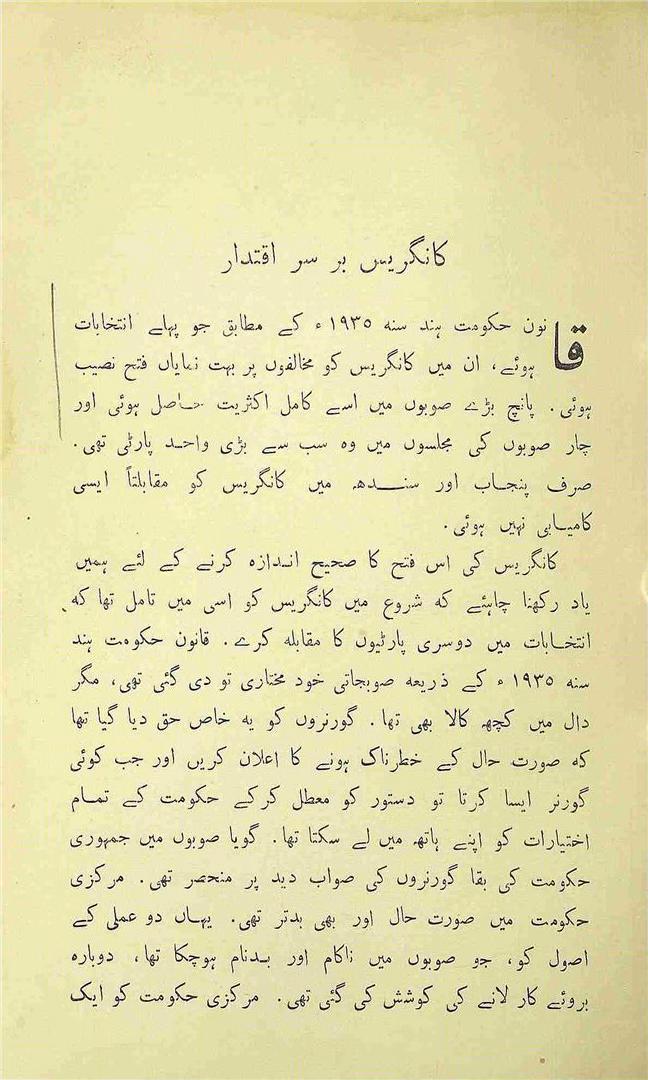 کانگریس بر سر اقتدار
قانون حکومت ہند سنہ ۱۹۳۵ ء کے مطابق جو پہلے انتخابات
ہوئے، ان میں کانگریس کو مخالفوں پر بہت نمایاں فتح نصیب
ہوئی۔ پانچ بڑے صوبوں میں اسے کامل اکثریت حاصل ہوئی اور
چار صوبوں کی مجلسوں میں وہ سب سے بڑی واحد پارٹی تھی۔
صرف پنجاب اور سندھ میں کانگریس کو مقابلتاً ایسی
کامیابی نہیں ہوئی۔
کانگریس کی اس فتح کا صحیح اندازہ کرنے کے لئے ہمیں
یاد رکھنا چاہئے کہ شروع میں کانگریس کو اسی میں تامل تھا کہ
انتخابات میں دوسری پارٹیوں کا مقابلہ کرے۔ قانون حکومت ہند
سنہ ۱۹۳۵ ء کے ذریعہ صوبجاتی خود مختاری تو دی گئی تھی، مگر
دال میں کچھ کالا بھی تھا۔ گورنروں کو یہ خاص حق دیا گیا تھا
کہ صورت حال کے خطرناک ہونے کا اعلان کریں اور جب کوئی
گورنر ایسا کرتا تو دستور کو معطل کرکے حکومت کے تمام
اختیارات کو اپنے ہاتھ میں لے سکتا تھا۔ گویا صوبوں میں جمہوری
حکومت کی بقا گورنروں کی صواب دید پر منحصر تھی۔ مرکزی
حکومت میں صورت حال اور بھی بدتر تھی۔ یہاں دو عملی کے
اصول کو، جو صوبوں میں ناکام اور بدنام ہوچکا تھا، دوبارہ
بروئے کار لانے کی کوشش کی گئی تھی۔ مرکزی حکومت کو ایک